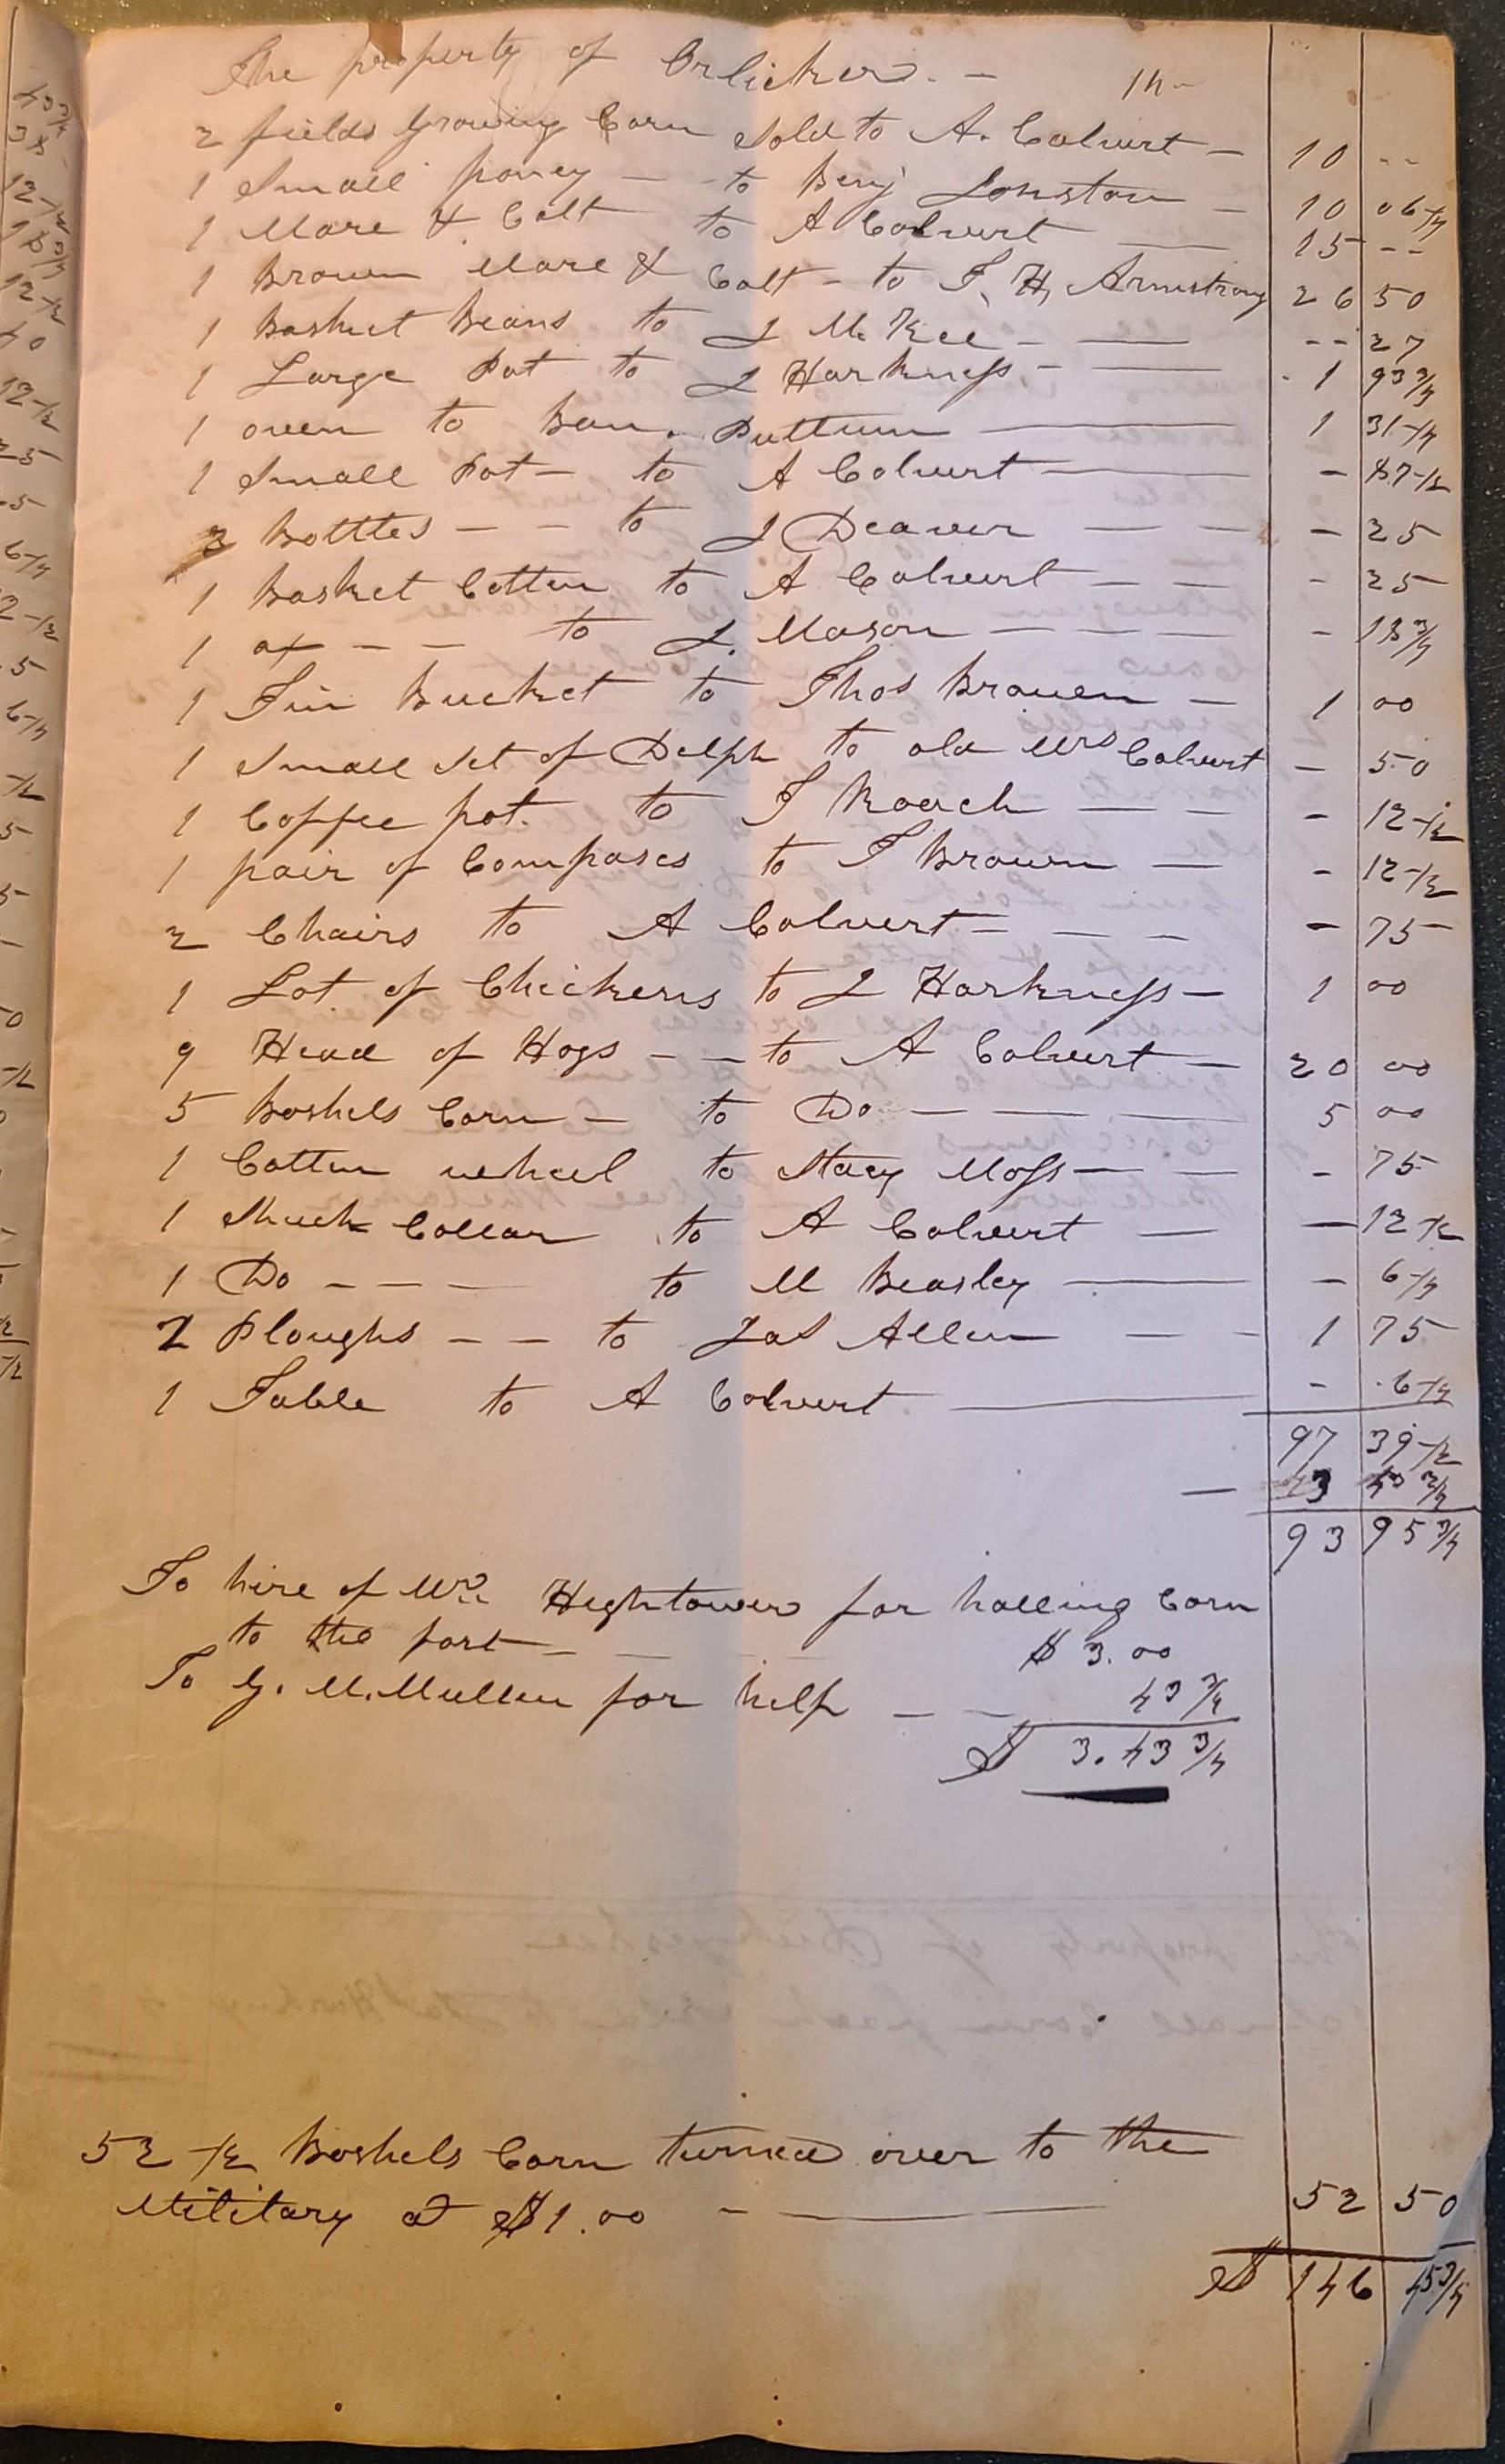 The property of Orlicker. – 14–
2 fields Growing Corn Sold to A. Colvert – 10 --
1 Small poney – - to Benj Jonston – 10 06 1/4
1 Mare & Colt to A Colvert — 15 --
1 Brown Mare & Colt – to T. H. Armstrong 26 50
1 Basket Beans to J McKee – — -- 27
1 Large Pot to J Harkness – — 1 93 3/4
1 oven to Ban. Pattum — 1 31 1/4
1 Small Pot – to A Colvert — – 87 1/2
3 Botttes – – to J Deaver — – – 25
1 Basket Cotten to A Colvert – — - 25
1 ax – – to J. Mason – — — – 18 3/4
1 Tin Bucket to Thos Browen – 1 00
1 Small Set of Delph to old Mrs Colvert – 50
1 Coffee pot. to T Roach — – - 12 1/2
1 pair of Compases to T Brown — - 12 1/2
2 Chairs to A Colvert – — – - 75
1 Lot of Chickens to J Harkness – 1 00
9 Head of Hogs – – to A Colvert — 20 00
5 Boshels Corn – to Do – — — 5 00
1 Cotten wheel to Stacy Moss — – - 75
1 Shuck Collar to A Colvert — — 12 1/2
1 Do – – — to M Beasley — – 6 1/4
2 Ploughs – – to Jas Allen — – 1 75
1 Table to A Colvert — - 6 1/4
97 39 1/2
— 3 43 3/4
93 95 3/4
To hire of Wm Hightower for halling Corn
to the fort – $ 3.00
To G. McMullen for help – – 43 3/4
$ 3.43 3/4
52 1/2 Boshels Corn turned over to the
Military at $1.00 – — 52 50
$ 146 45 3/4